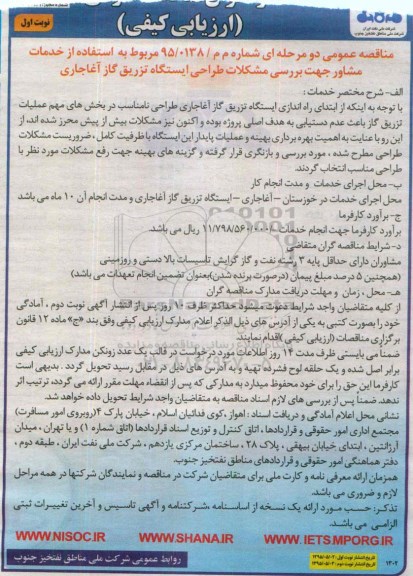 (ارزیابی کیفی)
نوبت اول
مناقصه عمومی دو مرحله ای شماره م م / ۹۵/۰۱۳۸ مربوط به استفاده از خدمات
مشاور جهت بررسی مشکلات طراحی ایستگاه تزریق گاز آغاجاری
الف- شرح مختصر خدمات :
با توجه به اینکه از ابتدای راه اندازی ایستگاه تزریق گاز آغاجاری طراحی نامناسب در بخش های مهم عملیات
تزریق گاز باعث عدم دستیابی به هدف اصلی پروژه بوده و اکنون نیز مشکلات بیش از پیش محرز شده اند، از
این رو با عنایت به اهمیت بهره برداری بهینه و عملیات پایدار این ایستگاه با ظرفیت کامل ، ضروریست مشکلات
طراحی مطرح شده ، مورد بررسی و بازنگری قرار گرفته و گزینه های بهینه جهت رفع مشکلات مورد نظر با
طراحی مناسب انتخاب گردند.
ب- محل اجرای خدمات و مدت انجام کار
محل اجرای خدمات در خوزستان - آغاجاری - ایستگاه تزریق گاز آغاجاری و مدت انجام آن ۱۰ ماه می باشد
ج- برآورد کارفرما
برآورد کارفرما جهت انجام خدمات ۱۱/۷۹۸/۵۶۰/۰۰۰ ریال می باشد.
د- شرایط مناقصه گران متقاضی
مشاوران دارای حداقل پایه ۳ رشته نفت و گاز گرایش تاسیسات بالا دستی و روزمینی
(همچنین ۵ درصد مبلغ پیمان (درصورت برنده شدن) بعنوان تضمین انجام تعهدات می باشد)
هـ- محل ، زمان و مهلت دریافت مدارک مناقصه گران
از کلیه متقاضیان واجد شرایط دعوت میشود حداکثر ظرف ۱۰ روز پس از انتشار آگهی نوبت دوم ، آمادگی
خود را بصورت کتبی به یکی از آدرس های ذیل الذکر اعلام مدارک ارزیابی کیفی وفق بند «ج» ماده ۱۲ قانون
برگزاری مناقصات (ارزیابی کیفی) اقدام نمایند
ضمناً می بایستی ظرف مدت ۱۴ روز اطلاعات مورد درخواست در قالب یک عدد زونکن مدارک ارزیابی کیفی
برابر اصل شده و یک حلقه لوح فشرده تهیه و به آدرس های ذیل در مقابل رسید تحویل گردد . بدیهی است
کارفرما این حق را برای خود محفوظ میدارد به مدارکی که پس از انقضاء مهلت مقرر ارائه می گردد، ترتیب اثر
ندهد. ضمناً پس از بررسی های لازم اسناد مناقصه به متقاضیان واجد شرایط تحویل داده خواهد شد.
نشانی محل اعلام آمادگی و دریافت اسناد : اهواز ،کوی فدائیان اسلام ، خیابان پارک ۴ (روبروی امور مسافرت)
مجتمع اداری امور حقوقی و قراردادها ، اتاق کنترل و توزیع اسناد قراردادها (اتاق شماره ۱) و یا تهران ، میدان
آرژانتین ، ابتدای خیابان بیهقی ، پلاک ۲۸ ، ساختمان مرکزی یازدهم ، شرکت ملی نفت ایران ، طبقه دوم ،
دفتر هماهنگی امور حقوقی و قراردادهای مناطق نفتخیز جنوب .
همزمان ارائه معرفی نامه و کارت ملی برای متقاضیان شرکت در مناقصه و نمایندگان شرکتها در همه مراحل
لازم و ضروری می باشد.
تذکر: حسب مورد ارائه یک نسخه از اساسنامه ،شرکتنامه و آگهی تاسیس و آخرین تغییرات ثبتی
الزامی می باشد.
WWW.NISOC.IR WWW.SHANA.IR WWW.IETS.MPORG.IR
روابط عمومی شرکت ملی مناطق نفتخیز جنوب
۱۴۰۲